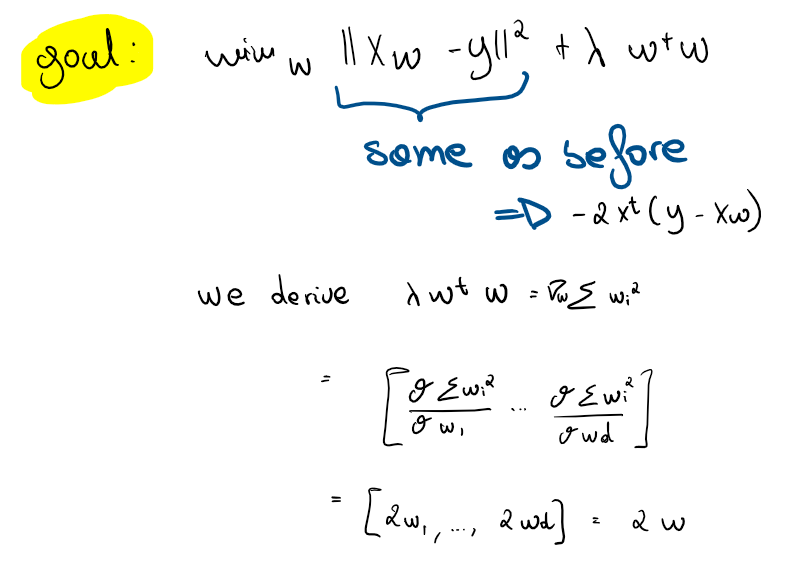 goal: min_w ||Xw - y||² + λ wᵗw
same as before
=> -2xᵗ(y - xw)
we derive λwᵗw = ∇w Σ wi²
= [∂Σwi²/∂w₁ ... ∂Σwi²/∂wd]
= [2w₁, ..., 2wd] = 2w